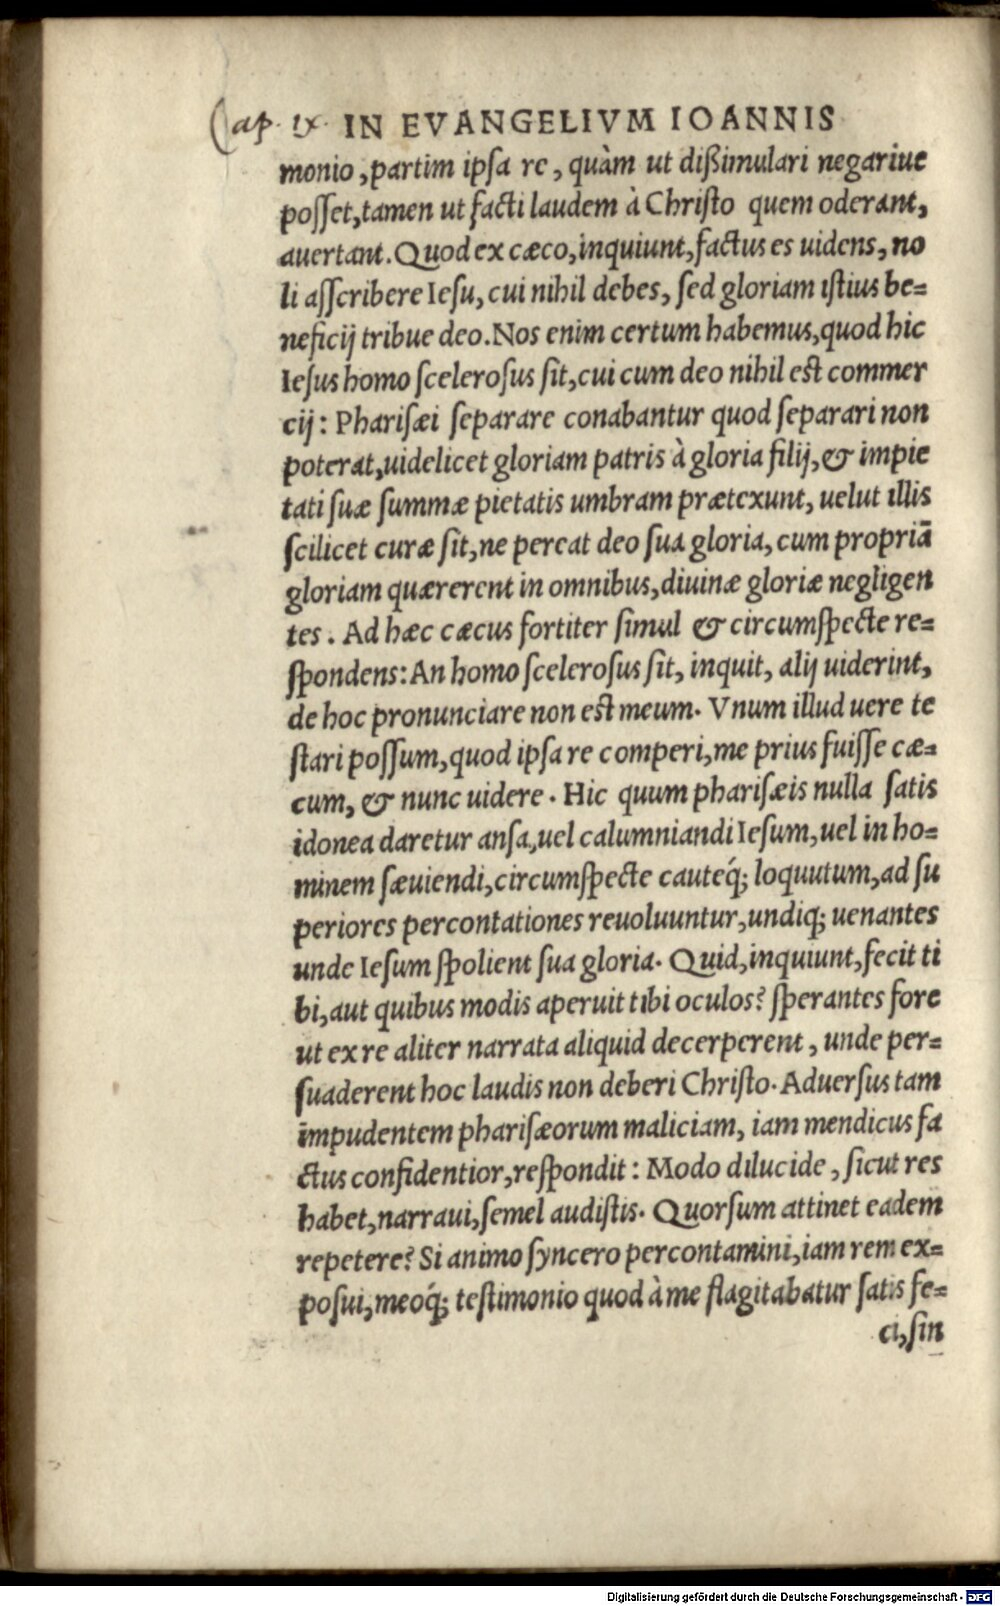 Cap. IX. IN EVANGELIVM IOANNIS
monio, partim ipſa re, quàm ut dißimulari negariue
poſſet, tamen ut facti laudem à Chriſto quem oderant,
auertant. Quod ex cæco, inquiunt, factus es uidens, no
li aſſcribere Ieſu, cui nihil debes, ſed gloriam iſtius be=
neficij tribue deo. Nos enim certum habemus, quod hic
Ieſus homo ſceleroſus ſit, cui cum deo nihil eſt commer
cij: Phariſæi ſeparare conabantur quod ſeparari non
poterat, uidelicet gloriam patris à gloria filij, & impie
tati ſuæ ſummæ pietatis umbram prætexunt, uelut illis
ſcilicet curæ ſit, ne pereat deo ſua gloria, cum propriā
gloriam quærerent in omnibus, diuinæ gloriæ negligen
tes. Ad hæc cæcus fortiter ſimul & circumſpecte re=
ſpondens: An homo ſceleroſus ſit, inquit, alij uiderint,
de hoc pronunciare non eſt meum. Vnum illud uere te
ſtari poſſum, quod ipſa re comperi, me prius fuiſſe cæ=
cum, & nunc uidere. Hic quum phariſæis nulla ſatis
idonea daretur anſa, uel calumniandi Ieſum, uel in ho=
minem ſæuiendi, circumſpecte cauteq́; loquutum, ad ſu
periores percontationes reuoluuntur, undiq; uenantes
unde Ieſum ſpolient ſua gloria. Quid, inquiunt, fecit ti
bi, aut quibus modis aperuit tibi oculos? ſperantes fore
ut ex re aliter narrata aliquid decerperent, unde per=
ſuaderent hoc laudis non deberi Chriſto. Aduerſus tam
impudentem phariſæorum maliciam, iam mendicus fa
ctus confidentior, reſpondit: Modo dilucide, ſicut res
habet, narraui, ſemel audiſtis. Quorſum attinet eadem
repetere? Si animo ſyncero percontamini, iam rem ex=
poſui, meoq́; teſtimonio quod à me flagitabatur ſatis fe=
ci, ſin
Digitalisierung gefördert durch die Deutsche Forschungsgemeinschaft - DFG